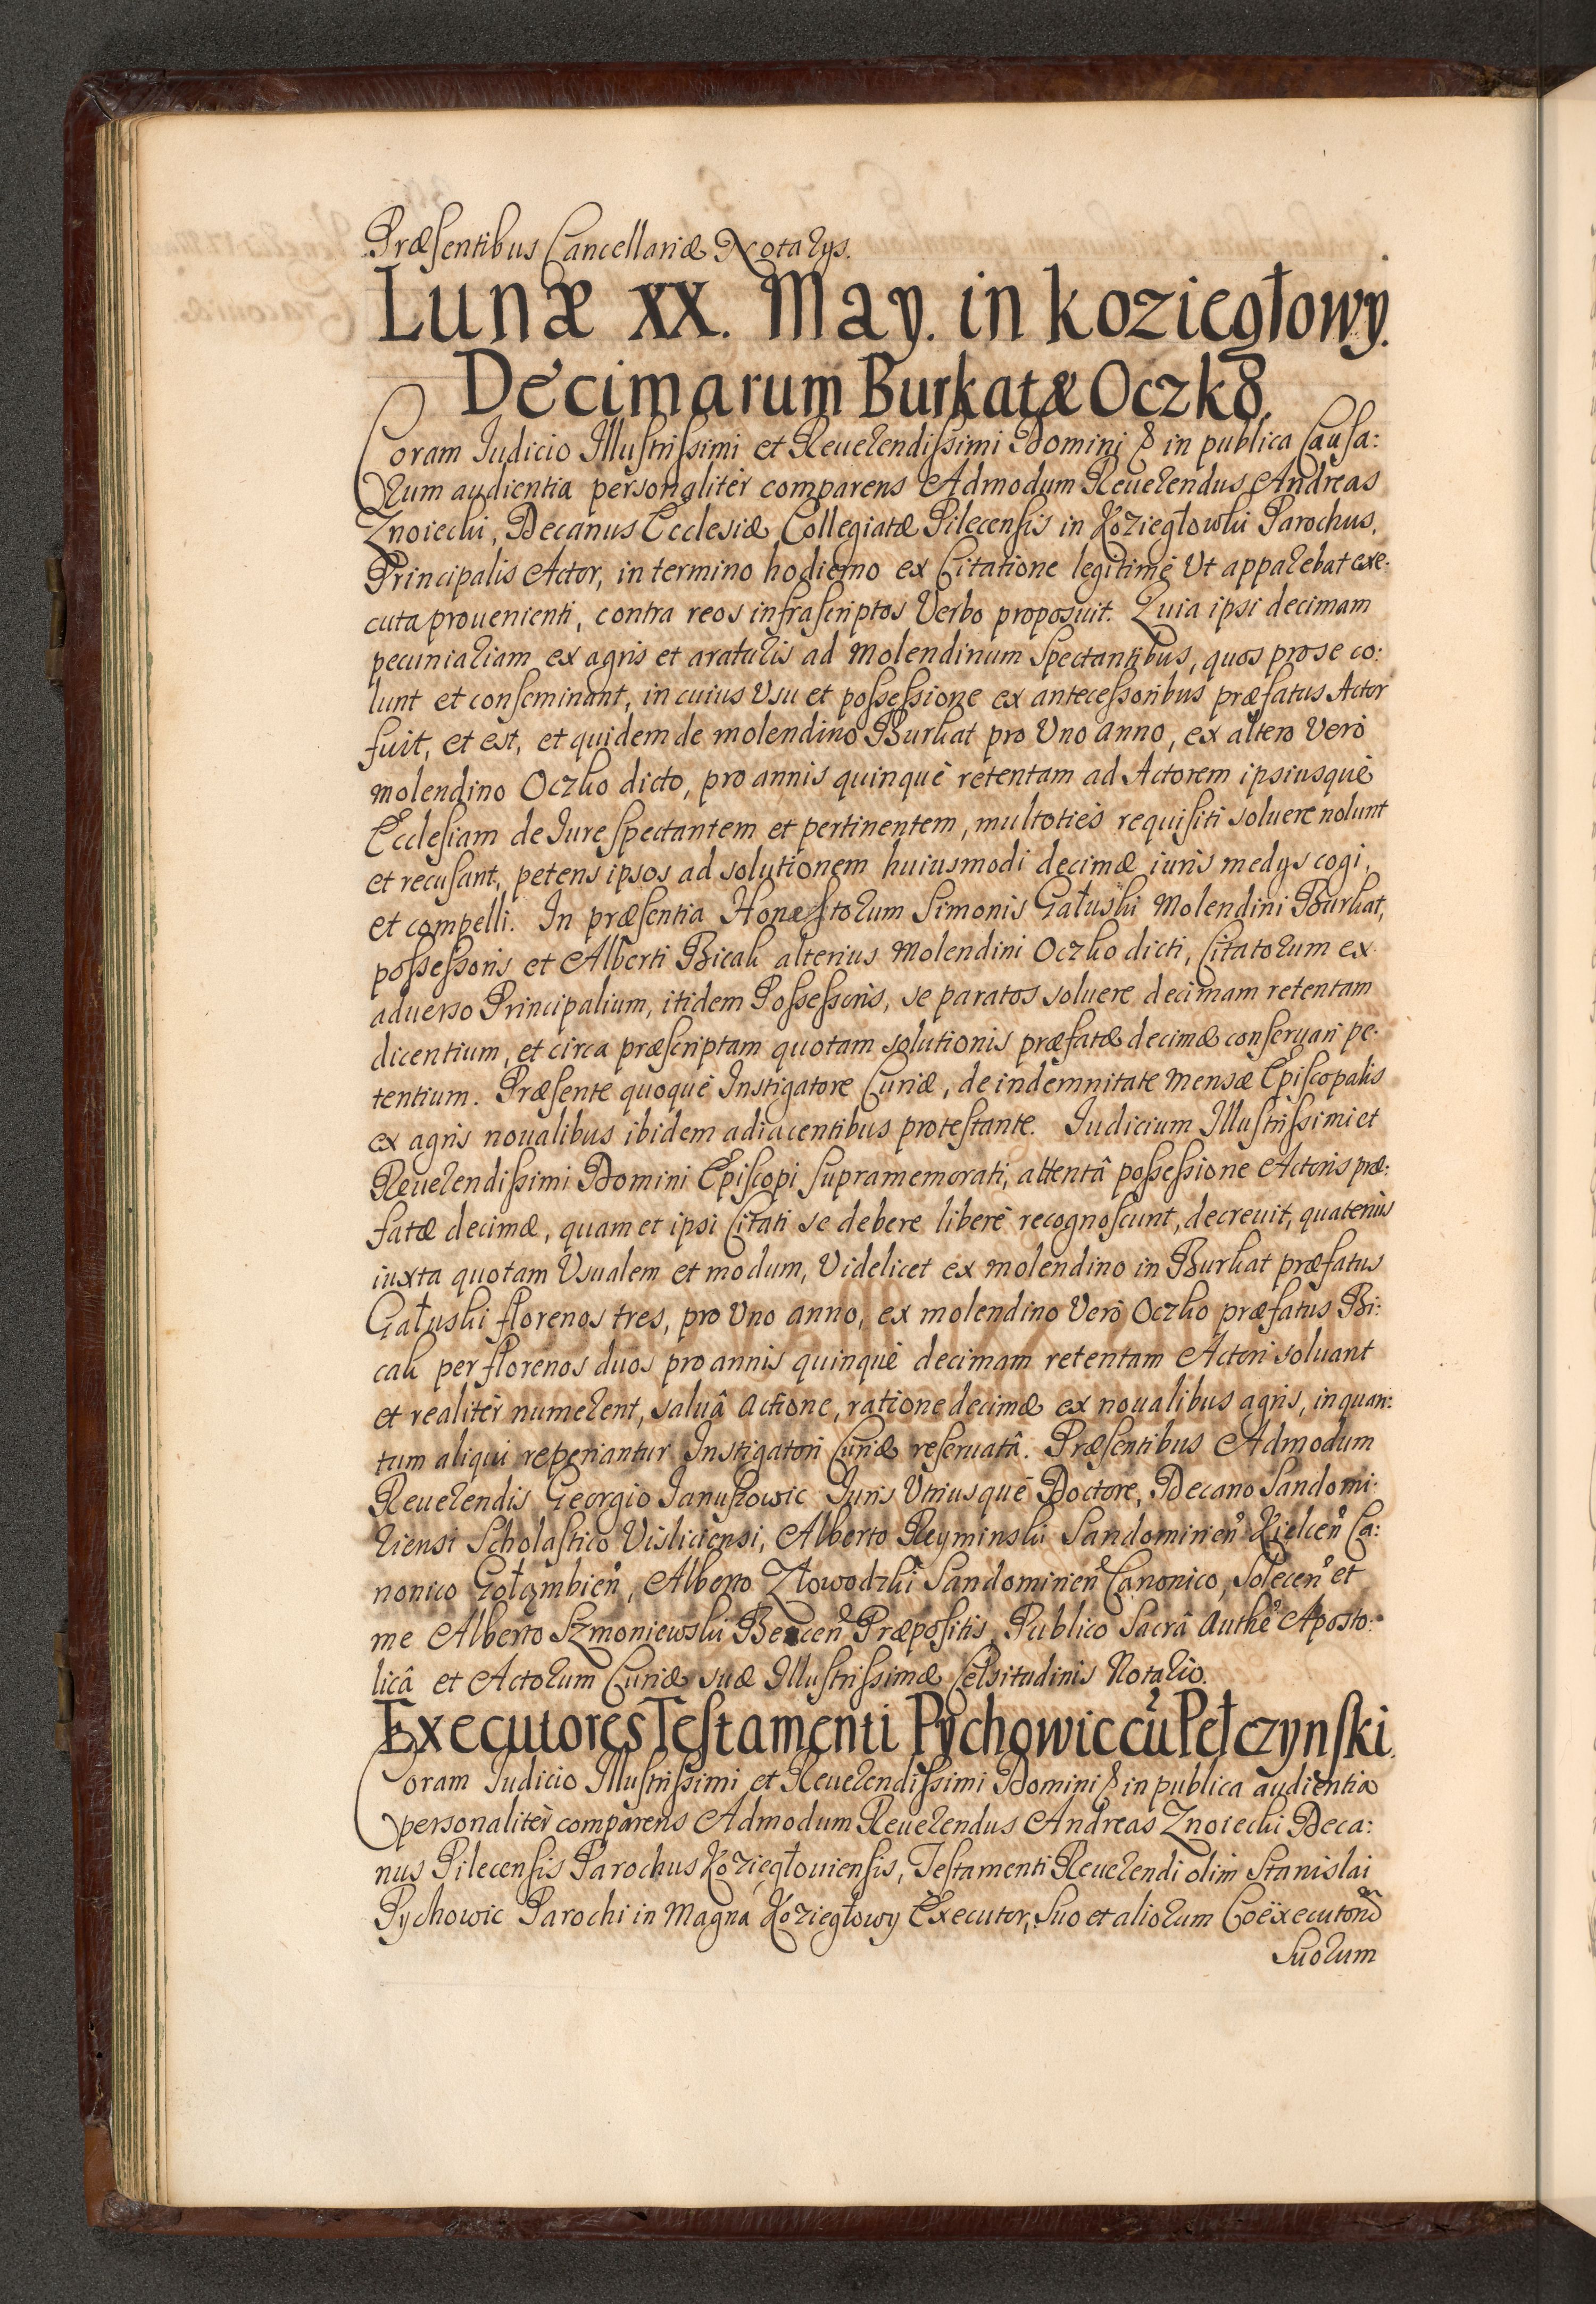 Præsentibus Cancellariæ Notarys.
Lunæ XX. May. in koziegłowy.
Decimarum Burkat & Oczko.
Coram Iudicio Illustrissimi et Reuerendissimi Domini & in publica Causa:
rum audientia personalitèr comparens Admodum Reuerendus Andreas
Znoiecki, Decanus Ecclesiæ Collegiatæ Pilecensis in Koziegłowki Parochus,
Principalis Actor, in termino hodierno ex Citatione legitimè Vt apparebat exe-
cuta prouenienti, contra reos infrascriptos Verbo proposuit. Quia ipsi decimam
pecuniariam ex agris et araturis ad Molendinum Spectantibus, quos pro se co:
lunt et conseminant, in cuius Vsu et possessione ex antecessoribus præfatus Actor
fuit, et est, et quidem de molendino Burkat pro Vno anno, ex altero Verò
molendino Oczko dicto, pro annis quinquè retentam ad Actorem ipsiusquè
Ecclesiam de Iure spectantem et pertinentem, multotiès requisiti soluere nolunt
et recusant, petens ipsos ad solutionem huiusmodi decimæ iuris medys cogi,
et compelli. In præsentia Honestorum Simonis Gałuski Molendini Burkat,
possessoris et Alberti Bicak alterius Molendini Oczko dicti, Citatorum ex
aduerso Principalium, itidem Possessoris, se paratos soluere decimam retentam
dicentium, et circa præscriptam quotam solutionis præfatæ decimæ conseruari pe-
tentium. Præsente quoquè Instigatore Curiæ, de indemnitate Mensæ Episcopalis
ex agris noualibus ibidem adiacentibus protestante. Iudicium Illustrissimi et
Reuerendissimi Domini Episcopi supramemorati, attentâ possessione Actoris præ:
fatæ decimæ, quam et ipsi Citati se debere liberè recognoscunt, decreuit, quatenùs
iuxta quotam Vsualem et modum, Videlicet ex molendino in Burkat præfatus
Gałuski florenos tres, pro Vno anno, ex molendino Verò Oczko præfatus Bi:
cak per florenos duos pro annis quinquè decimam retentam Actori soluant
et realitèr numerent, saluâ actione, ratione decimæ ex noualibus agris, in quan:
tum aliqui reperiantur Instigatori Curiæ reseruatâ. Præsentibus Admodum
Reuerendis Georgio Ianuszowic Iuris Vtriusquè Doctore, Decano Sandomi-
riensi Scholastico Visliciensi, Alberto Reyminski Sandomirien̄ Kielcen̄ Ca:
nonico Gołęmbien̄, Alberto Złowodzki Sandomirien̄ Canonico, Solecen̄ et
me Alberto Szmoniewski Præpositis, Publico Sacrâ Authē Aposto:
licâ et Actorum Curiæ suæ Illustrissimæ Celsitudinis Notario.
Executores Testamenti Pychowic cū Pełczynski.
Coram Iudicio Illustrissimi et Reuerendissimi Domini & in publica audientia
personalitèr comparens Admodum Reuerendus Andreas Znoiecki Deca:
nus Pilecensis Parochus Koziegłouiensis, Testamenti Reuerendi olim Stanislai
Pychowic Parochi in Magna Koziegłowy Executor, Suo et aliorum Coëxecutorū
Suorum